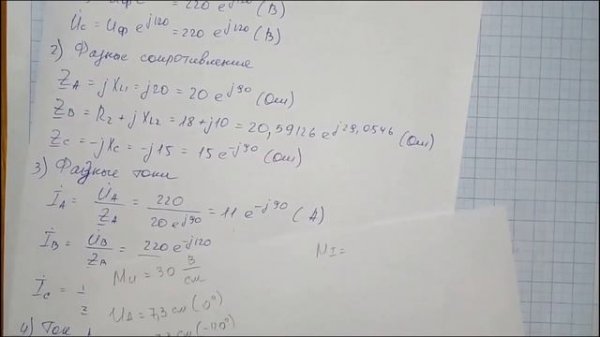 = 220 e (В)
U̇c = Uф e^j120 = 220 e^j120 (В)
2) Фазные сопротивления
Z_A = jX_L1 = j20 = 20 e^j90 (Ом)
Z_B = R2 + jX_L2 = 18 + j10 = 20,59126 e^j29,0546 (Ом)
Z_C = -jXc = -j15 = 15 e^-j90 (Ом)
3) Фазные токи
İ_A = U̇_A / Z_A = 220 / 20 e^j90 = 11 e^-j90 (А)
İ_B = U̇_B / Z_B = 220 e^-j120
M_I =
Mu = 30 В/см
İ_C =
U_A = 7,3 см (0°)
4) Ток
(-120°)